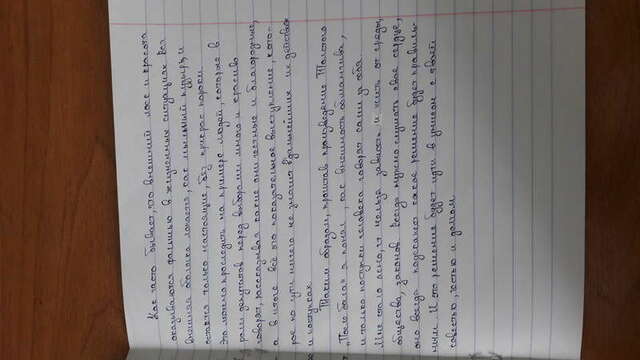 Как часто бывает, что внешний лоск и красота
оказываются фальшью в жизненных ситуациях. Вся
внешняя оболочка лопается, как мыльный пузырь, и
остаётся только настоящие, без прикрас пороки.
Это можно проследить на примере людей, которые в
роли депутатов перед выборами много и красиво
говорят, рассказывая какие они честные и благородные,
а в итоге всё это показательное выступление, кото-
рое по сути ничего не значит в дальнейших их действиях
и поступках.
Таким образом, прочитав произведение Толстого
"После бала" я понял, как внешность обманчива,
и только поступки человека говорят сами за себя.
Мне стало ясно, что нельзя зависеть и жить от среды,
общества, законов. Всегда нужно слушать свое сердце,
оно всегда подскажет какое решение будет правиль-
ным. И это решение будет идти в унисон с твоей
совестью, честью и домом.